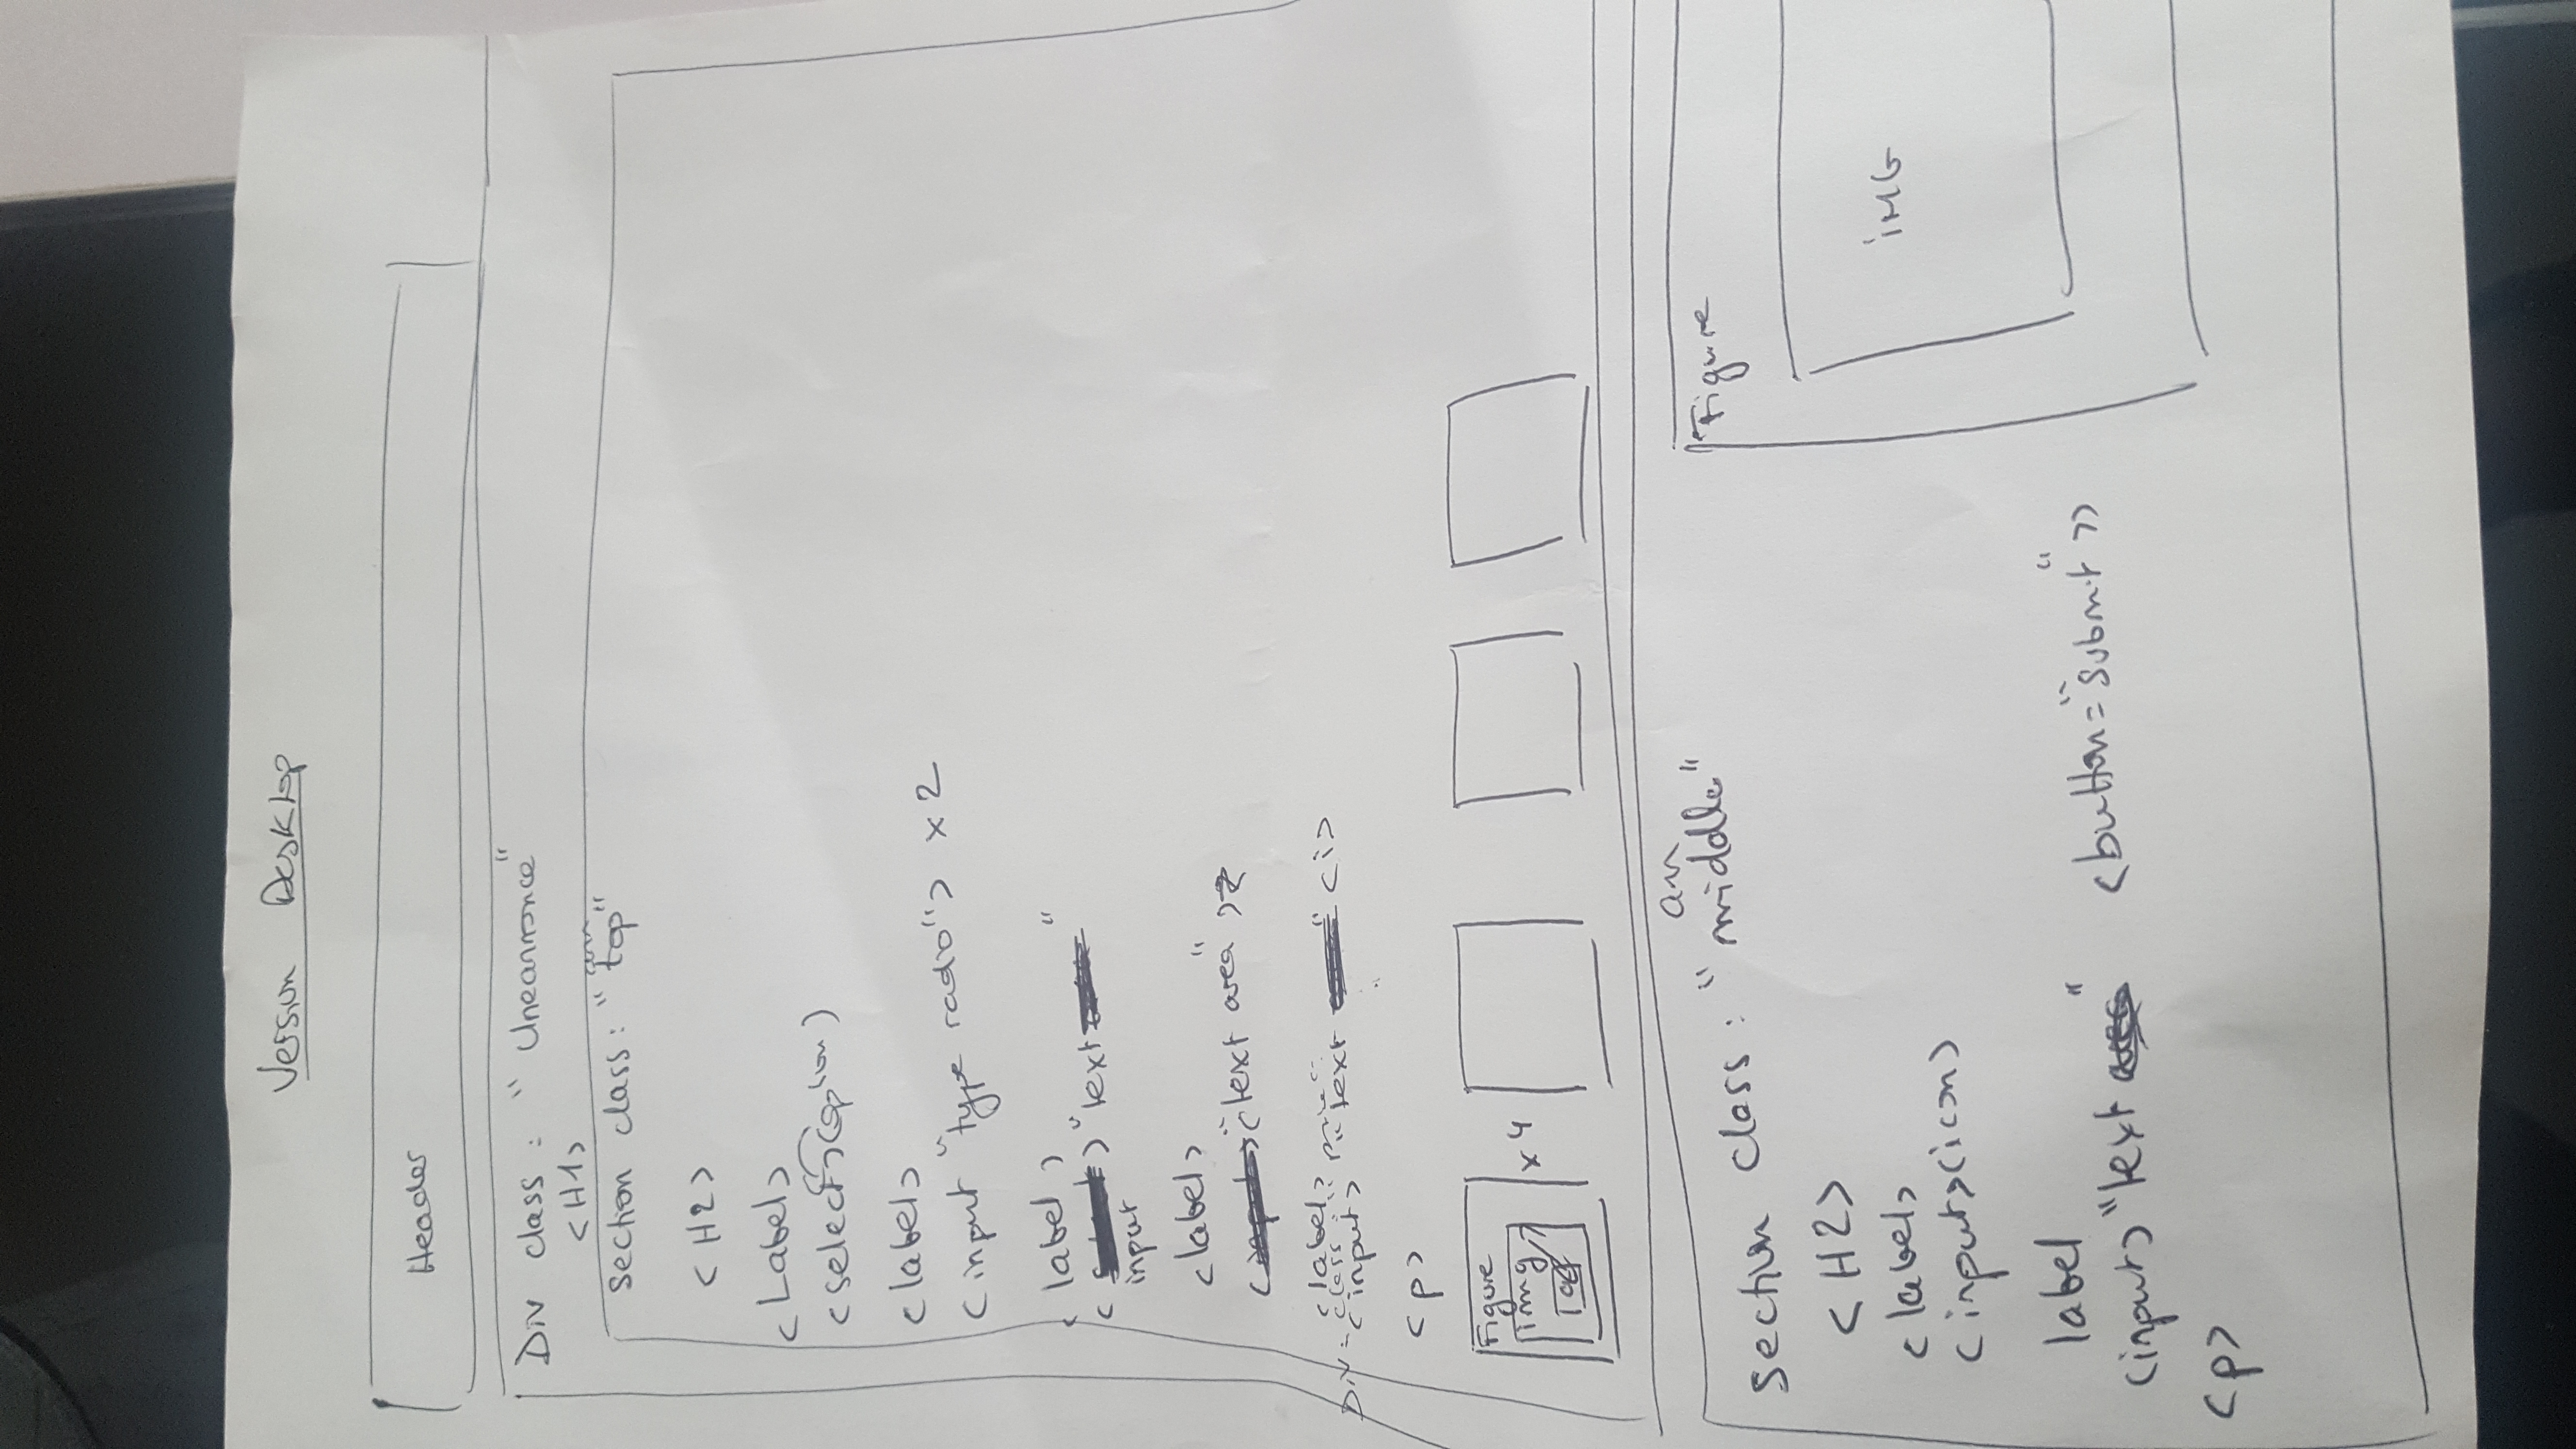 Version Desktop
Header
Div class : "Uneannonce"
<H1>
ann
section class: "top"
<H2>
<Label>
<select>(option)
<label>
<input "type radio"> x 2
<label>
< > "text "
input
<label>
<"text area">
<label>
Div = class : "
<input> "text " <i>
<p>
Figure
img
x 4
an
section class : "middle"
Figure
<H2>
iMG
<label>
<input>(icon)
label
<input> "text " <button="submit">>
<p>